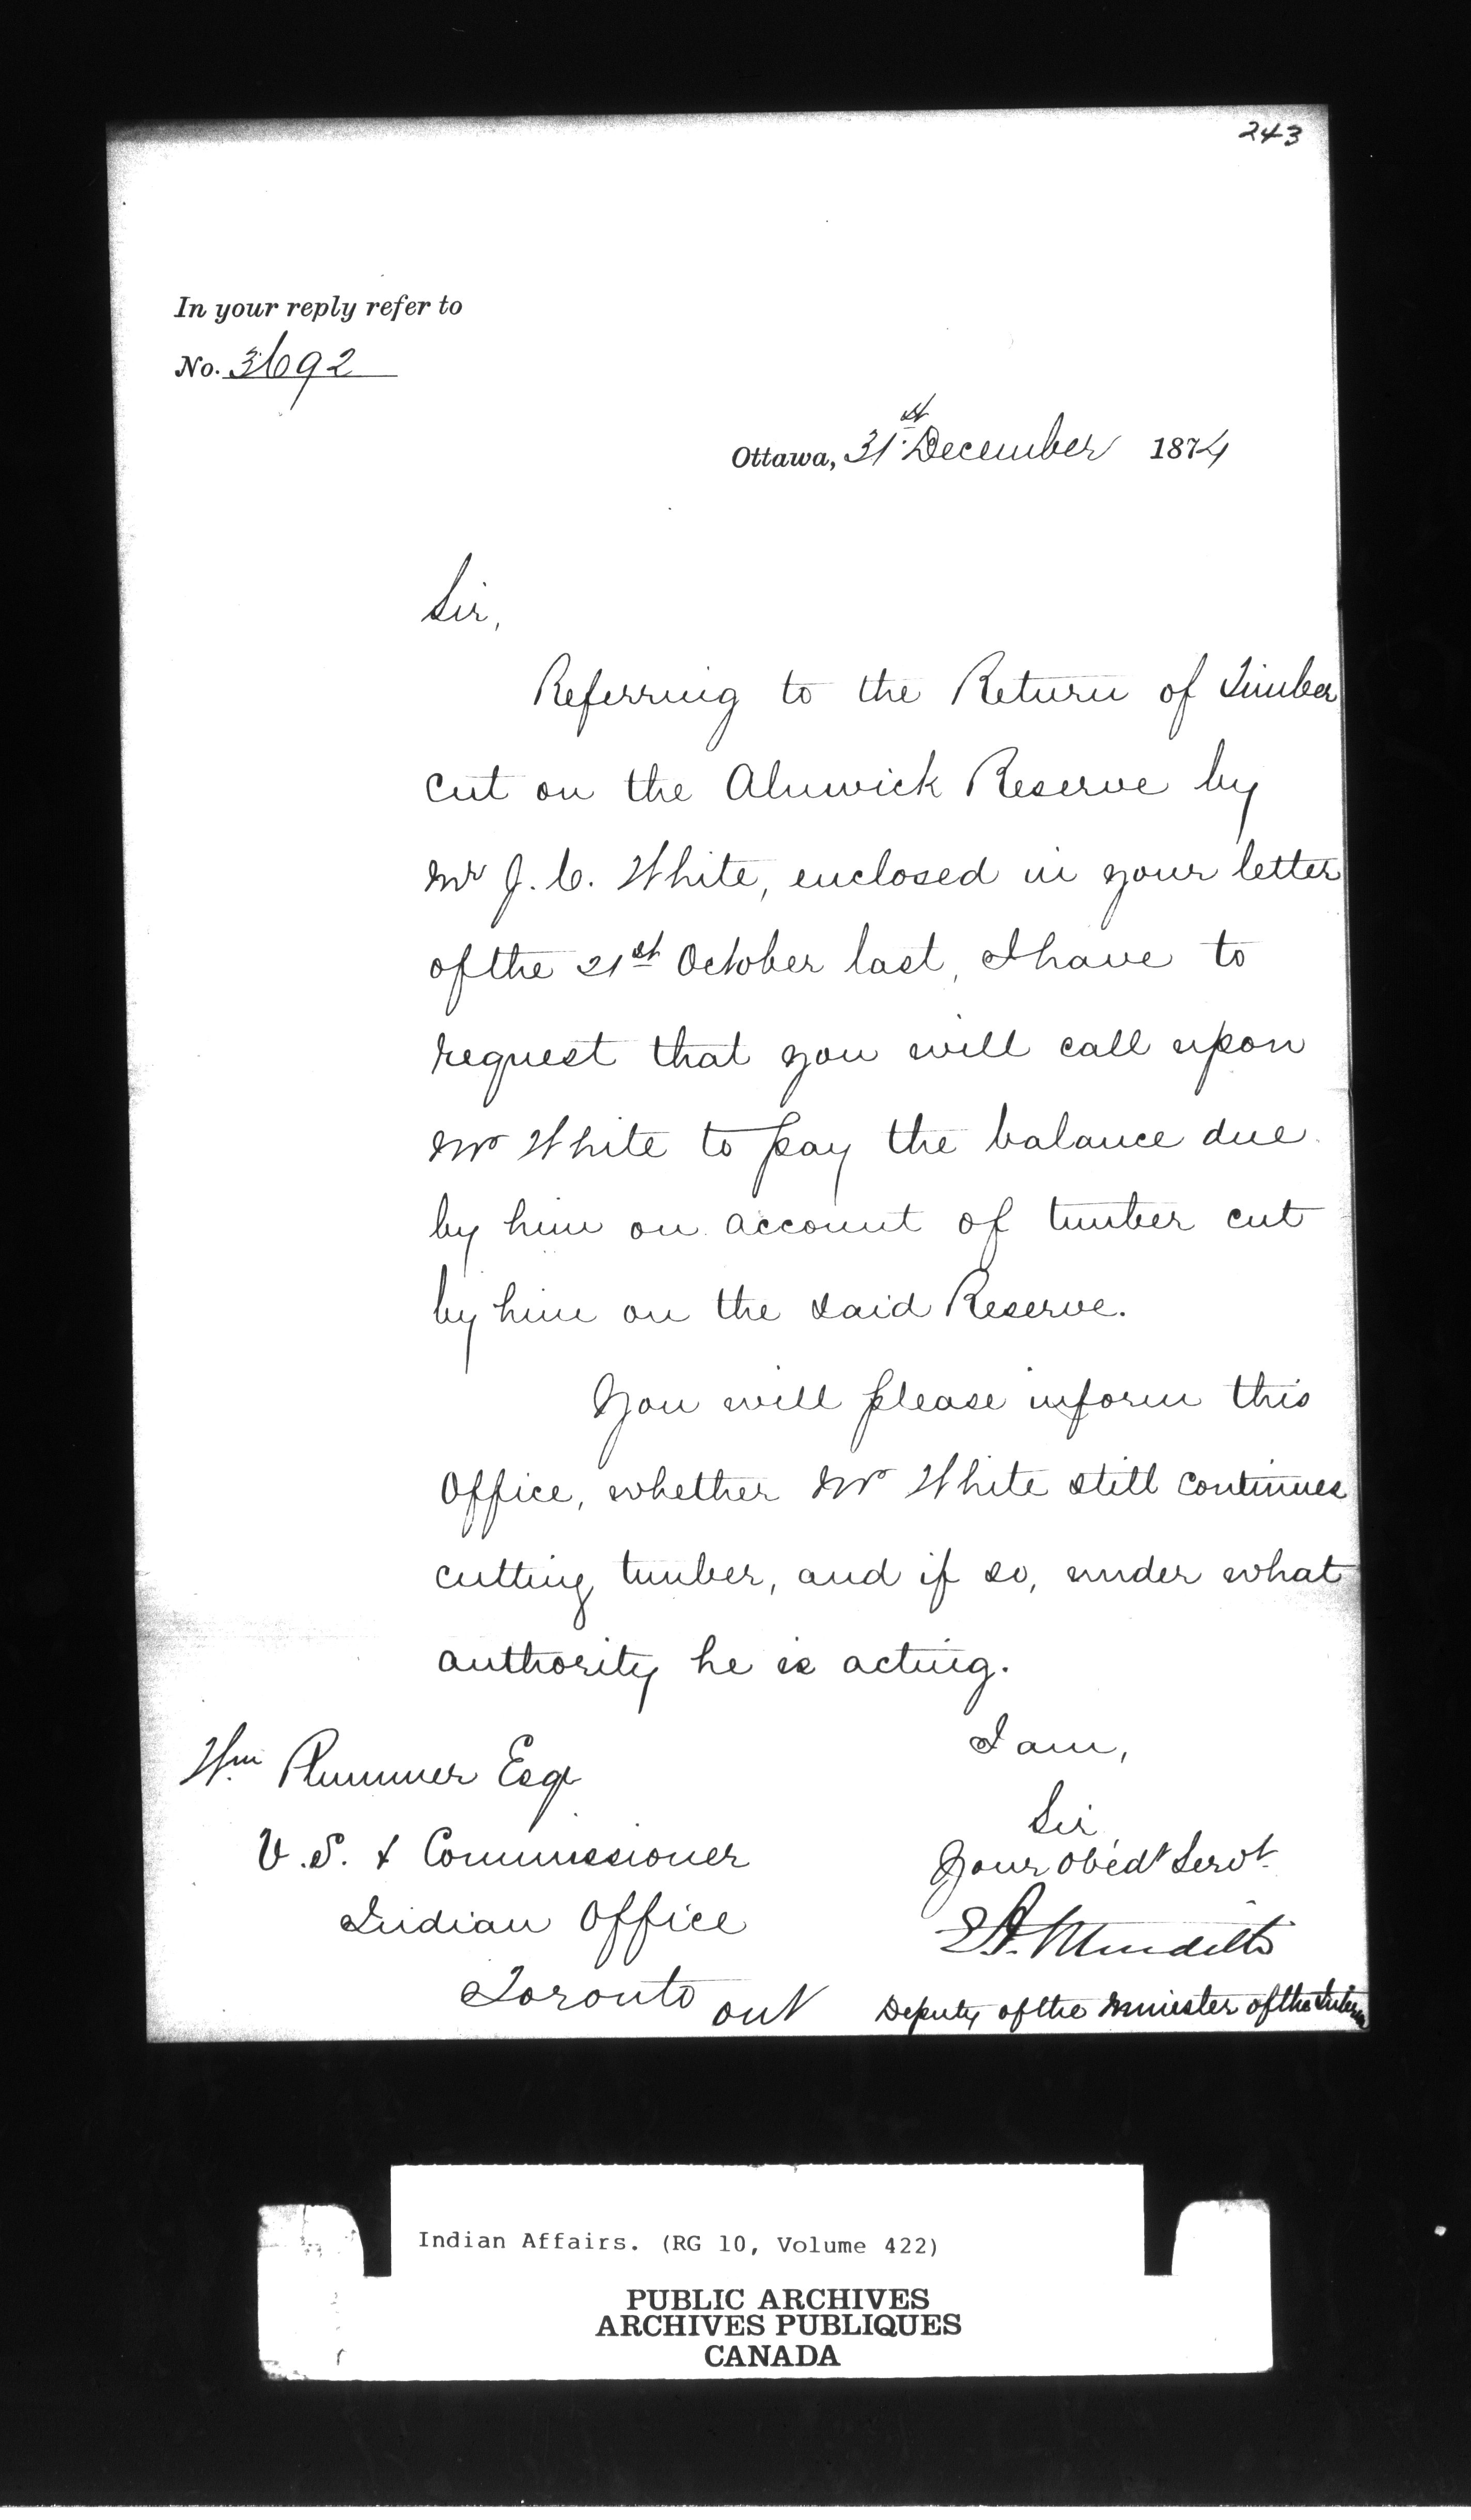 243
In your reply refer to
No. 3692
Ottawa, 31st December 1874
Sir,
Referring to the Return of Timber
cut on the Alnwick Reserve by
Mr J. C. White, enclosed in your letter
of the 21st October last, I have to
request that you will call upon
Mr White to pay the balance due
by him on account of timber cut
by him on the said Reserve.
You will please inform this
Office, whether Mr White still continues
cutting timber, and if so, under what
authority he is acting.
I am,
Sir,
Your Obedt Servt
E A. Meredith
Deputy of the Minister of the Interior
Wm Plummer Esqr
V. S. & Commissioner
Indian Office
Toronto Ont
Indian Affairs. (RG 10, Volume 422)
PUBLIC ARCHIVES
ARCHIVES PUBLIQUES
CANADA